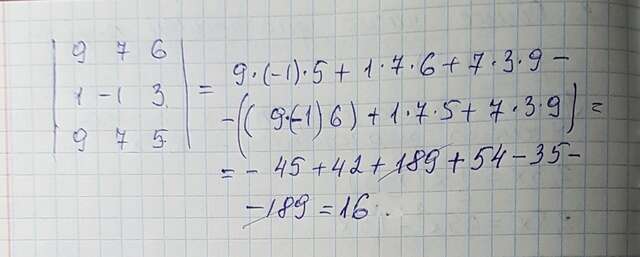 | 9 7 6 |
| 1 -1 3 | = 9·(-1)·5 + 1·7·6 + 7·3·9 -
| 9 7 5 |
-((9·(-1)6) + 1·7·5 + 7·3·9) =
= - 45 + 42 + 189 + 54 - 35 -
- 189 = 16